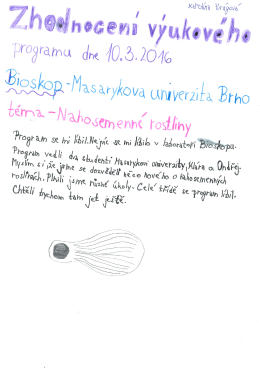 Zhodnocení výukového
programu dne 10.3.2016
Bioskop-Masarykova univerzita Brno
téma - Nahosemenné rostliny
Program se mi líbil. Nejvíc se mi líbilo v laboratoři Bioskopu.
Program vedli dva studenti Masarykovi university, Klára a Ondřej.
Myslím si že jsme se dozvěděli něco nového o nahosemenných
rostlinách. Plnili jsme různé úkoly. Celé třídě se program líbil.
Chtěli bychom tam jet ještě.